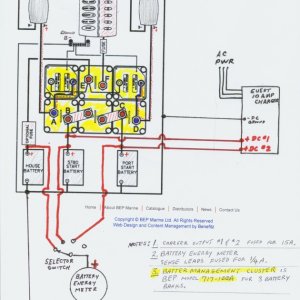 AC
PWR
GUEST
10 AMP
CHARGER
- DC
GROUND
+ DC #1
+ DC #2
OPTIONAL
FUSE
HOUSE
BATTERY
STBD
START
BATTERY
PORT
START
BATTERY
Home | About BEP Marine | Catalogue | Distributors | News | Contact Us
Copyright © BEP Marine Ltd. All Rights Reserved
Web Design and Content Management by Benefitz
SELECTOR
SWITCH
BATTERY
ENERGY
METER
NOTES: 1. CHARGER OUTPUT #1 & #2 FUSED FOR 15A.
2. BATTERY ENERGY METER
SENSE LEADS FUSED FOR 1/4A.
3. BATTER MANAGEMENT CLUSTER IS
BEP MODEL FOR 3 BATTERY
BANKS.